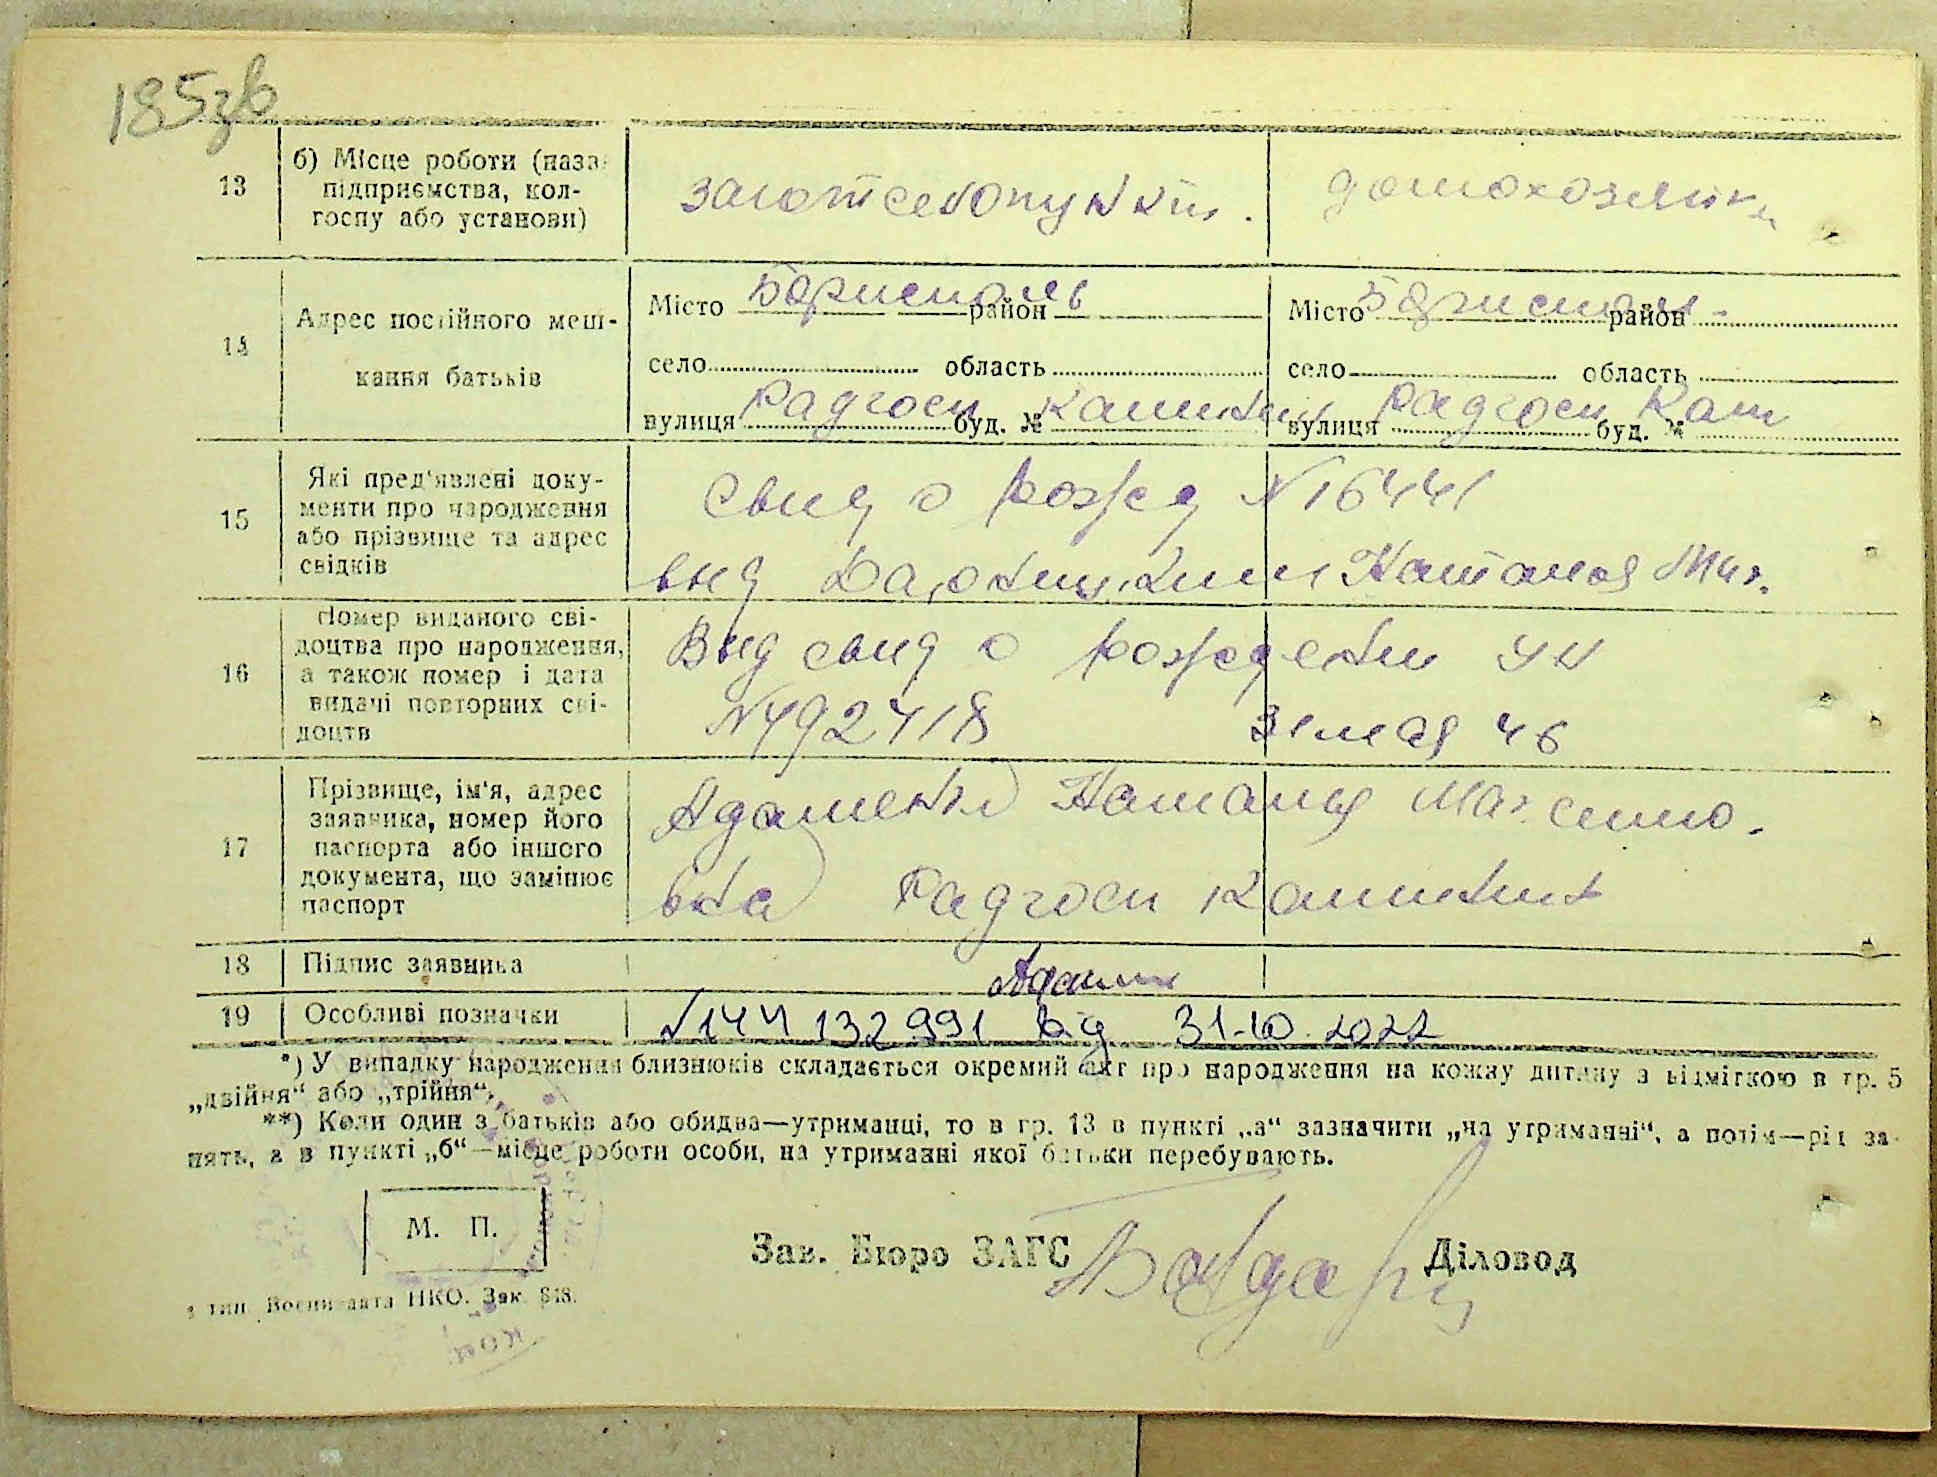 185зв
13 б) Місце роботи (назв підприємства, колгоспу або установи) заготсенопункт. домохозяйка
14 Адрес постійного меш-
кання батьків
Місто Борисполь район Місто Борисполь район
село область село область
вулиця Радгосп буд. № вулиця Радгосп буд. №
15 Які пред'явлені доку-
менти про народження
або прізвище та адрес
свідків
Свид о рожд N16441
выд
16 Номер виданого сві-
доцтва про народження,
а також номер і дата
видачі повторних сві-
доцтв
Выд свид о рождении УН
N492418 31 мая 46
17 Прізвище, ім'я, адрес
заявника, номер його
паспорта або іншого
документа, що замінює
паспорт
Адаменко Наталия Максимо-
вна Радгосп
18 Підпис заявника
19 Особливі позначки 132991 від 31.10.2022
*) У випадку народження близнюків складається окремий акт про народження на кожну дитину з відміткою в гр. 5
„двійня“ або „трійня“.
**) Коли один з батьків або обидва—утриманці, то в гр. 13 в пункті „а“ зазначити „на утриманні“, а потім—рід за-
нять, а в пункті „б“—місце роботи особи, на утриманні якої батьки перебувають.
М. П.
Зав. Бюро ЗАГС Діловод
тип. Воениздата НКО. Зак. 848.